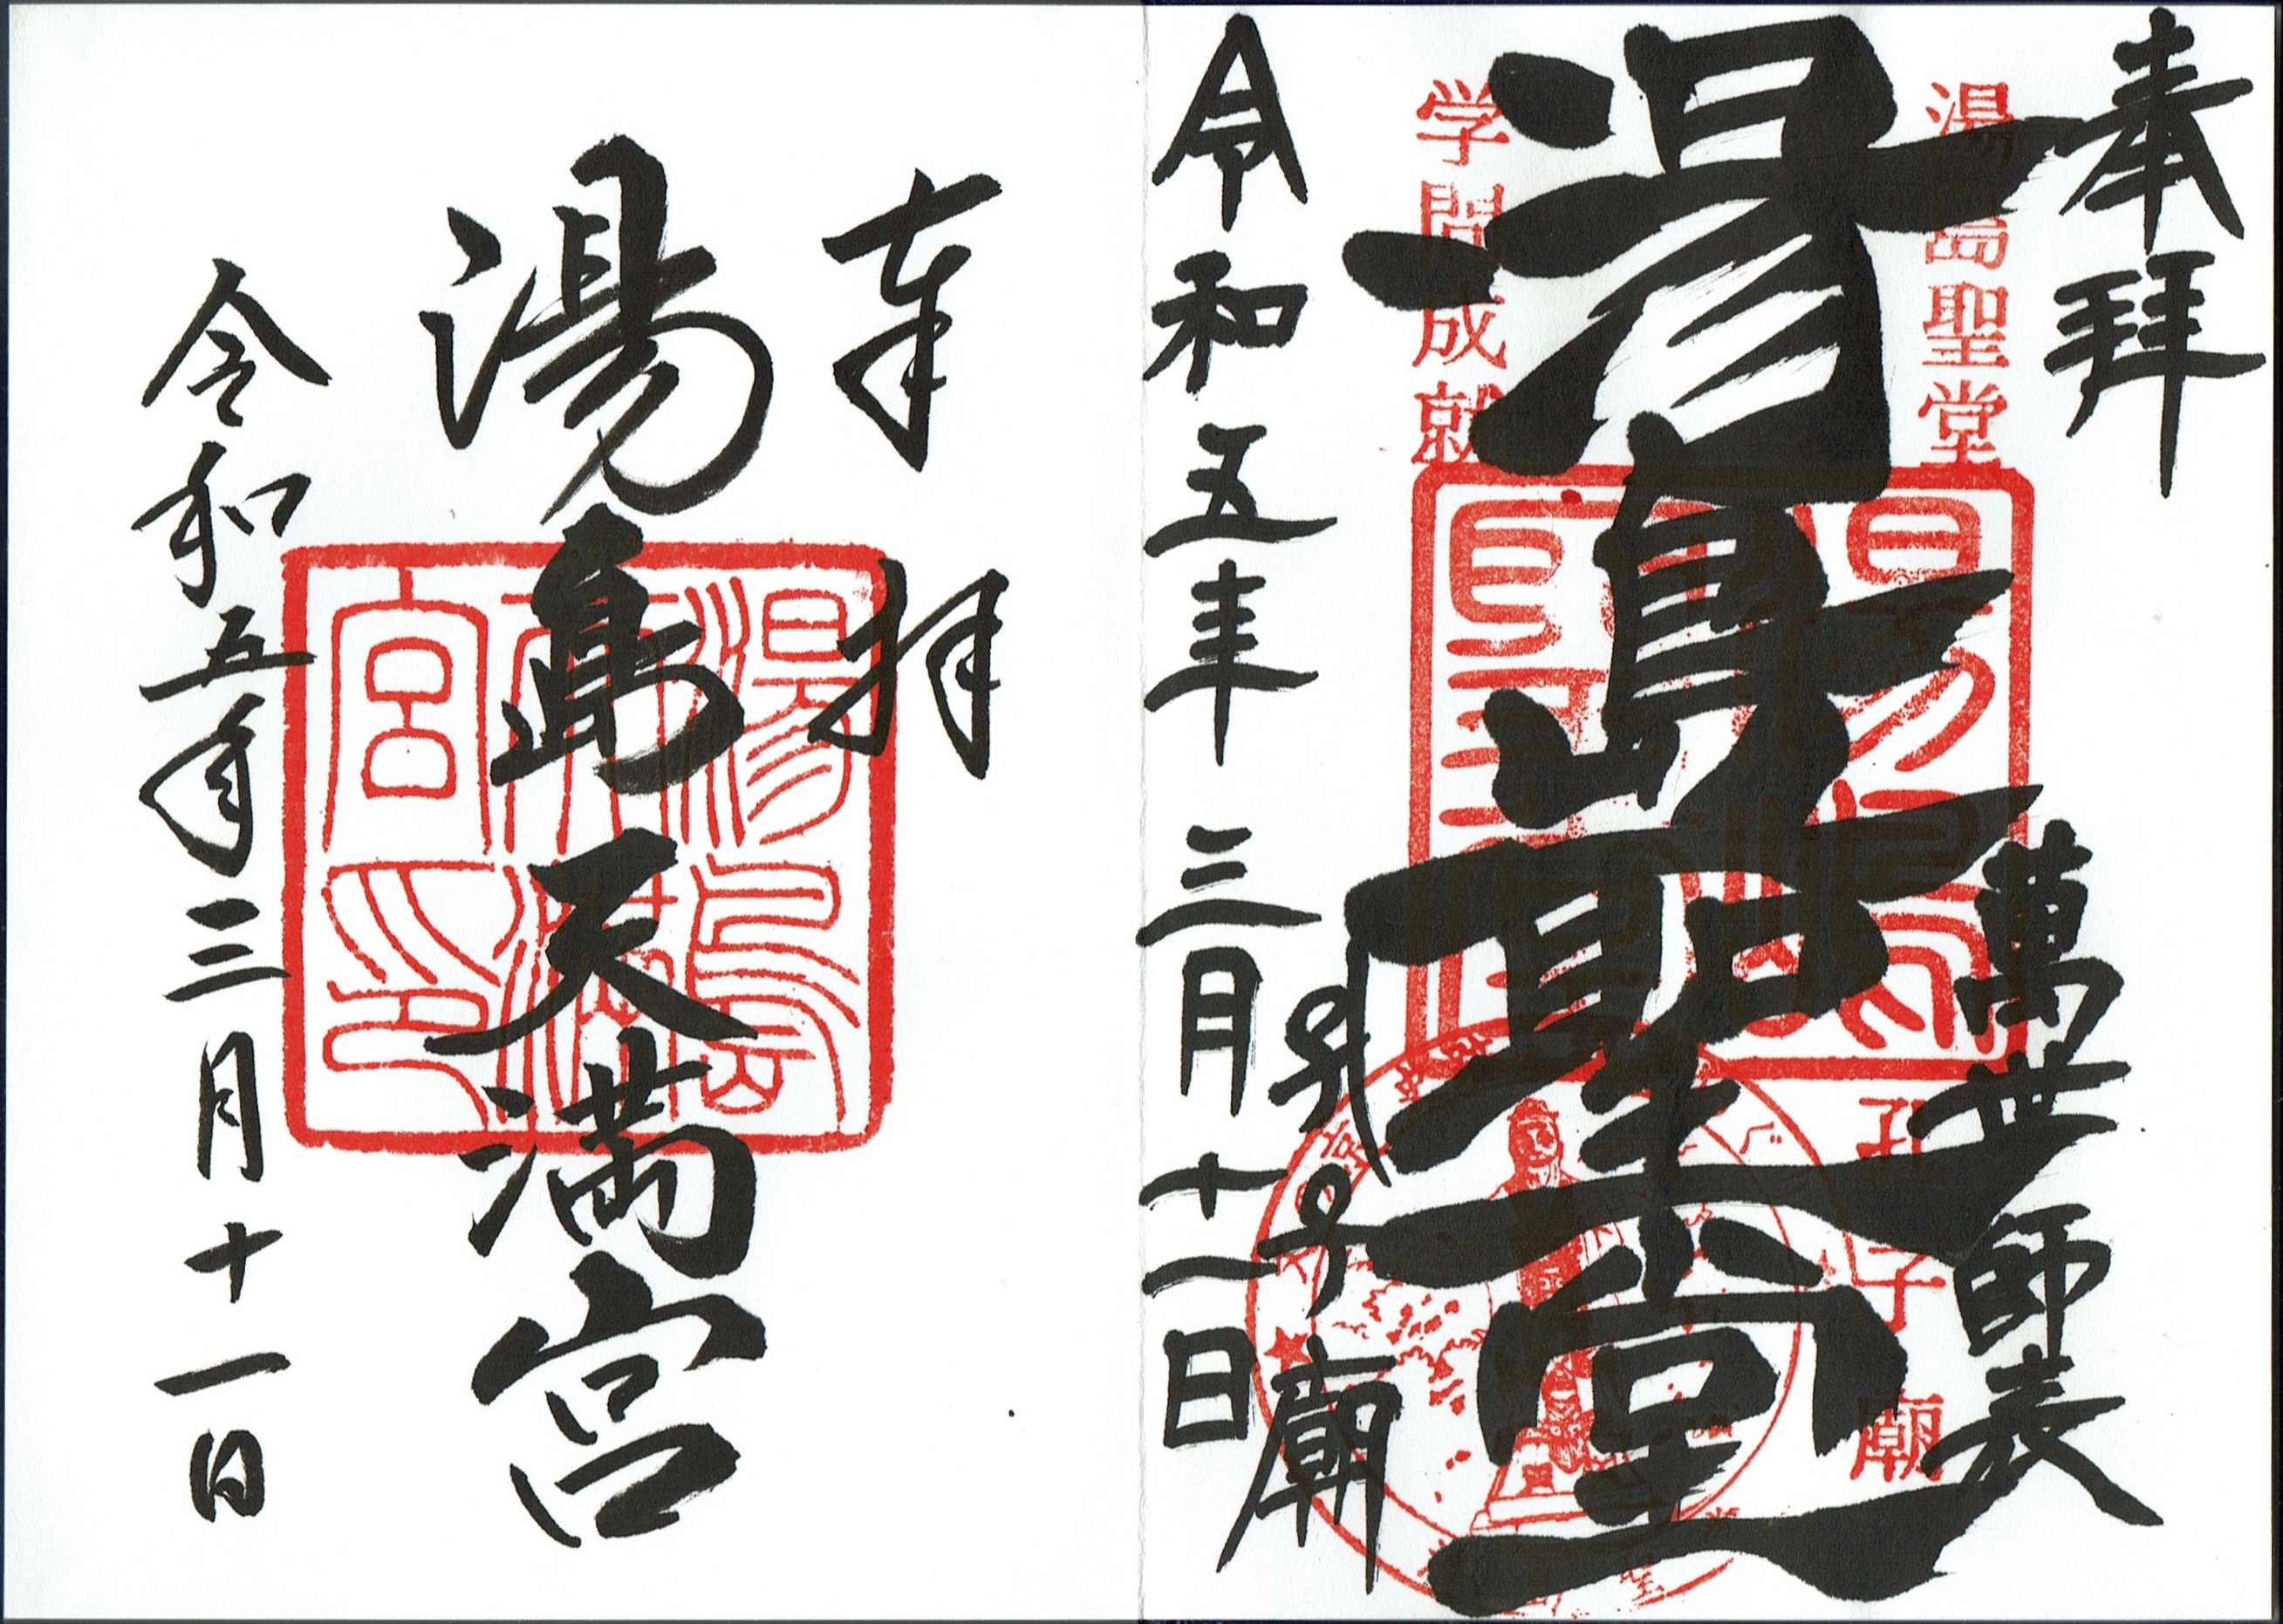 奉拝
湯島聖堂
萬世師表
湯島聖堂
孔子廟
学問成就
孔子廟
令和五年三月十一日
奉拝
湯島天満宮
湯島天満宮印
令和五年三月十一日